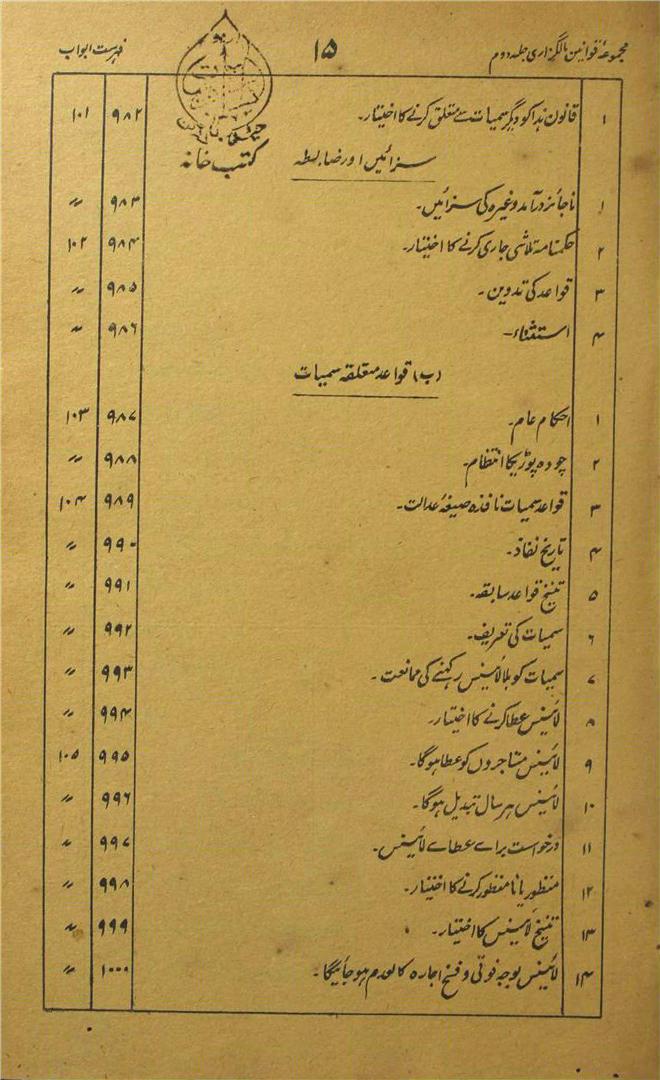 مجموعۂ قوانین مالگزاری جلد دوم ۱۵ فہرست ابواب
۱ قانون ہذا کو دیگر سمیات سے متعلق کرنے کا اختیار۔ ۹۸۲ ۱۰۱
کتب خانہ
سزائیں اور ضابطہ
۱ ناجائز درآمد وغیرہ کی سزائیں۔ ۹۸۳ 〃
۲ حکمنامہ تلاشی جاری کرنے کا اختیار۔ ۹۸۴ ۱۰۲
۳ قواعد کی تدوین۔ ۹۸۵ 〃
۴ استثناء۔ ۹۸۶ 〃
(ب) قواعد متعلقہ سمیات
۱ احکام عام۔ ۹۸۷ ۱۰۳
۲ چودہ پوڑیکا انتظام۔ ۹۸۸ 〃
۳ قواعد سمیات نافذہ صیغۂ عدالت۔ ۹۸۹ ۱۰۴
۴ تاریخ نفاذ۔ ۹۹۰ 〃
۵ تنسیخ قواعد سابقہ۔ ۹۹۱ 〃
۶ سمیات کی تعریف۔ ۹۹۲ 〃
۷ سمیات کو بلا لائیسنس رکھنے کی ممانعت۔ ۹۹۳ 〃
۸ لائیسنس عطا کرنے کا اختیار۔ ۹۹۴ 〃
۹ لائیسنس مستاجروں کو عطا ہوگا۔ ۹۹۵ ۱۰۵
۱۰ لائیسنس ہر سال تبدیل ہوگا۔ ۹۹۶ 〃
۱۱ درخواست براے عطاے لائیسنس۔ ۹۹۷ 〃
۱۲ منظور یا نامنظور کرنے کا اختیار۔ ۹۹۸ 〃
۱۳ تنسیخ لائیسنس کا اختیار۔ ۹۹۹ 〃
۱۴ لائیسنس بوجہ فوتی و فسخ اجارہ کالعدم ہوجائیگا۔ ۱۰۰۰ 〃